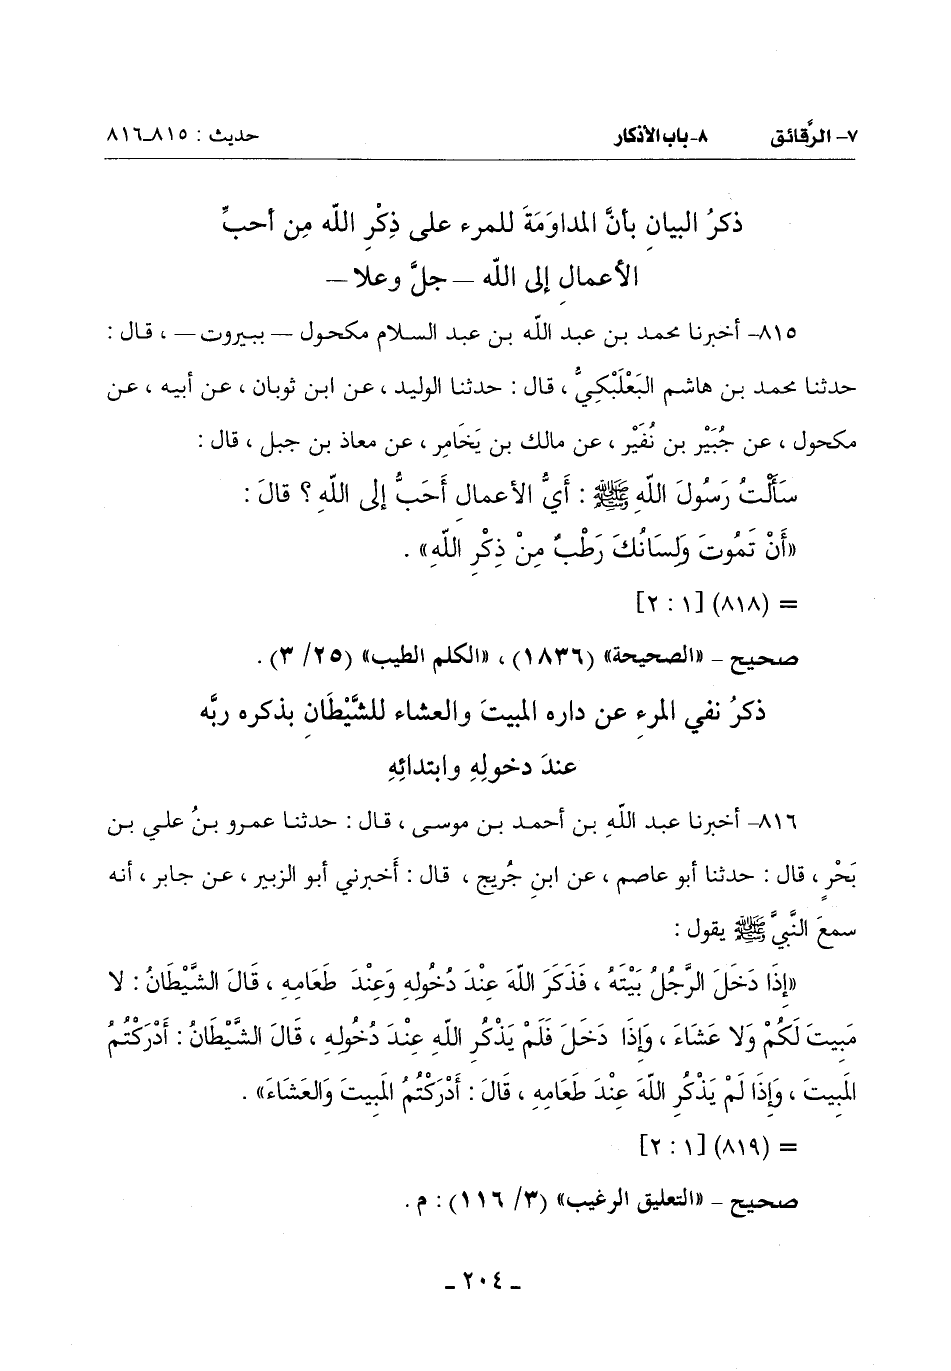 ٧- الرَّقائق ٨-باب الأذكار حديث : ٨١٥-٨١٦
ذكرُ البيانِ بأنَّ المداوَمَةَ للمرء على ذِكْرِ اللّه مِن أحبِّ
الأعمالِ إلى اللّه – جلَّ وعلا –
٨١٥- أخبرنا محمد بن عبد اللّه بن عبد السلام مكحول – ببيروت – ، قال :
حدثنا محمد بن هاشم البَعْلَبْكِيُّ ، قال : حدثنا الوليد ، عن ابن ثوبان ، عن أبيه ، عن
مكحول ، عن جُبَيْر بن نُفَيْر ، عن مالك بن يَخَامِر ، عن معاذ بن جبل ، قال :
سَأَلْتُ رَسُولَ اللّهِ ﷺ : أَيُّ الأعمالِ أَحَبُّ إلى اللّهِ ؟ قالَ :
«أَنْ تَمُوتَ وَلِسَانُكَ رَطْبٌ مِنْ ذِكْرِ اللّهِ» .
= (٨١٨) [١ : ٢]
صحيح – «الصحيحة» (١٨٣٦) ، «الكلم الطيب» (٢٥/ ٣) .
ذكرُ نفي المرءِ عن داره المبيتَ والعشاء للشَّيْطَانِ بذكره ربَّه
عندَ دخولِهِ وابتدائِهِ
٨١٦- أخبرنا عبد اللّهِ بن أحمد بن موسى ، قال : حدثنا عمرو بنُ علي بن
بَحْرٍ ، قال : حدثنا أبو عاصم ، عن ابنِ جُريج ، قال : أَخبرني أبو الزبير ، عن جابر ، أنه
سمعَ النَّبيَّ ﷺ يقول :
«إِذَا دَخَلَ الرَّجُلُ بَيْتَهُ ، فَذَكَرَ اللّهَ عِنْدَ دُخُولِهِ وَعِنْدَ طَعَامِهِ ، قَالَ الشَّيْطَانُ : لا
مَبِيتَ لَكُمْ وَلا عَشَاءَ ، وَإِذَا دَخَلَ فَلَمْ يَذْكُرِ اللّهِ عِنْدَ دُخُولِهِ ، قَالَ الشَّيْطَانُ : أَدْرَكْتُمُ
المَبِيتَ ، وَإِذَا لَمْ يَذْكُرِ اللّهَ عِنْدَ طَعَامِهِ ، قَالَ : أَدْرَكْتُمُ المَبِيتَ وَالعَشَاءَ» .
= (٨١٩) [١ : ٢]
صحيح – «التعليق الرغيب» (٣/ ١١٦) : م .
- ٢٠٤ -